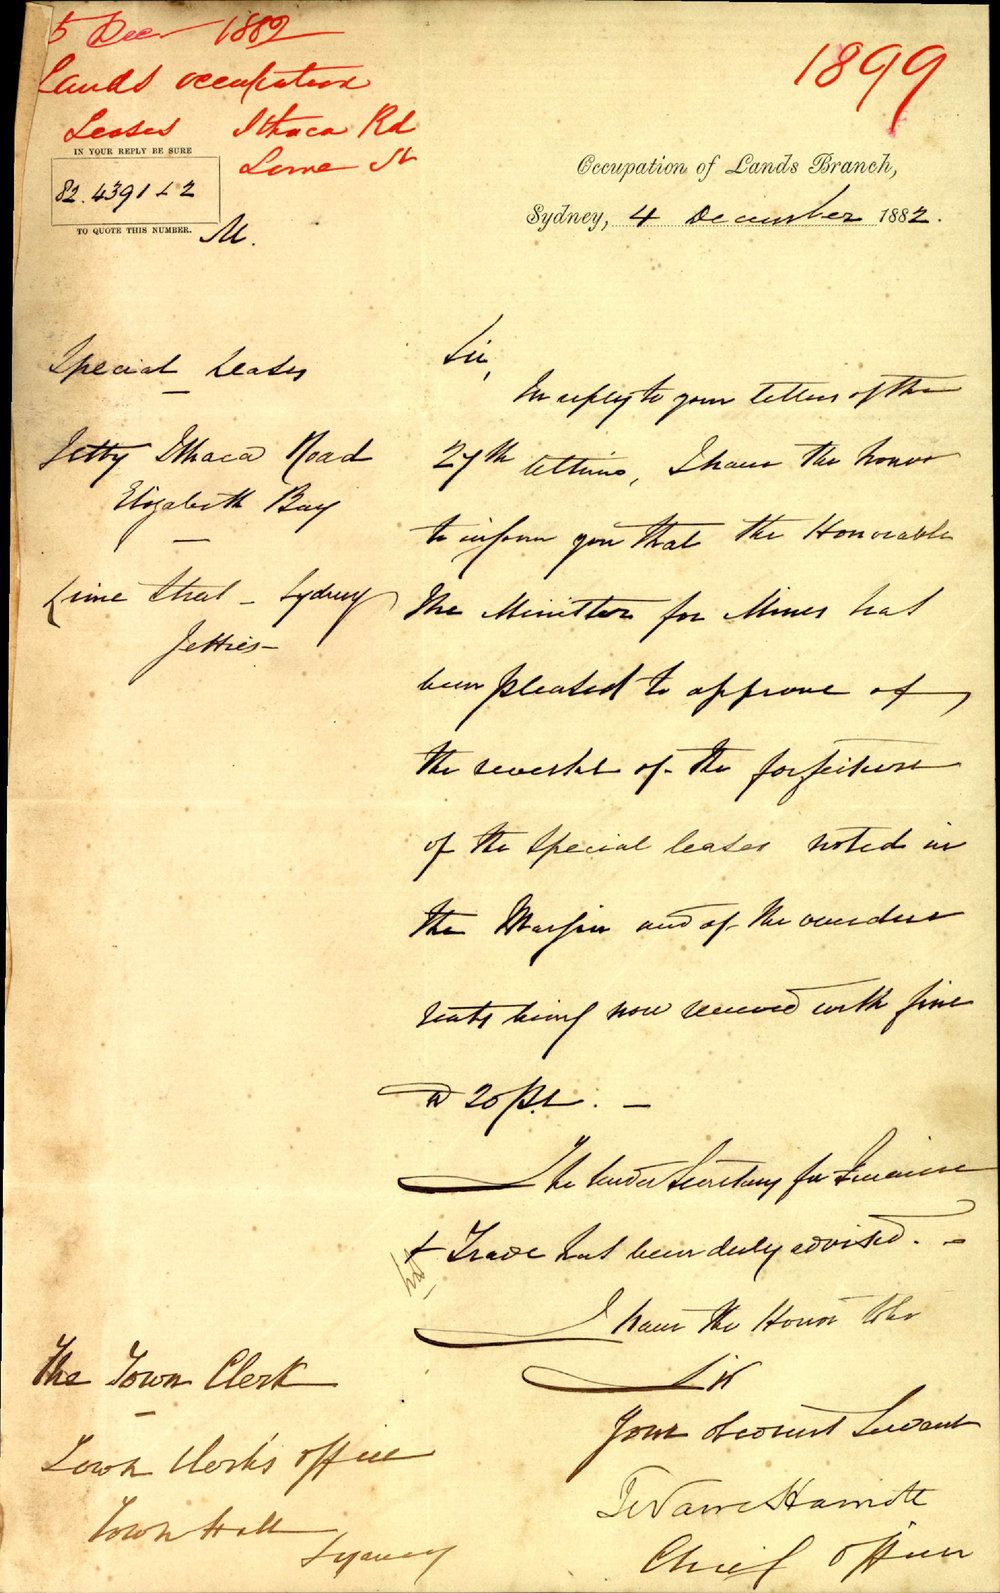 5 Dec 1882
Lands occupation
Leases Ithaca Rd
Lime St
1899
IN YOUR REPLY BE SURE
82.4391 L 2
TO QUOTE THIS NUMBER.
M.
Occupation of Lands Branch,
Sydney, 4 December 1882.
Special Leases
Jetty Ithaca Road
Elizabeth Bay
Lime Street - Sydney
Jetties -
Sir,
In reply to your letters of the
27th ultimo, I have the honor
to inform you that the Honorable
the Minister for Mines has
been pleased to approve of
the reversal of the forfeiture
of the special leases noted in
the Margin and of the overdue
rents being now received with fine
20
The Under Secretary for Finance
& Trade has been duly advised. -
I have the Honor to be
Sir
Your obedient Servant
Chief Officer
The Town Clerk
Town Clerk's office
Town Hall
Sydney